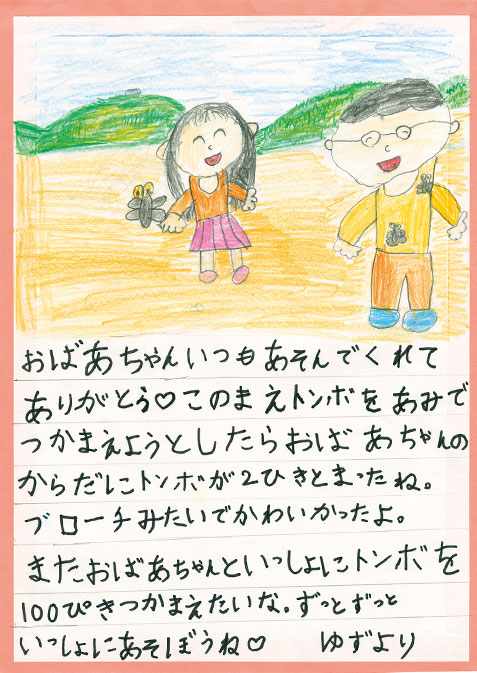 おばあちゃんいつもあそんでくれて
ありがとう♡このまえトンボをあみで
つかまえようとしたらおばあちゃんの
からだにトンボが2ひきとまったね。
ブローチみたいでかわいかったよ。
またおばあちゃんといっしょにトンボを
100ぴきつかまえたいな。ずっとずっと
いっしょにあそぼうね♡ ゆずより